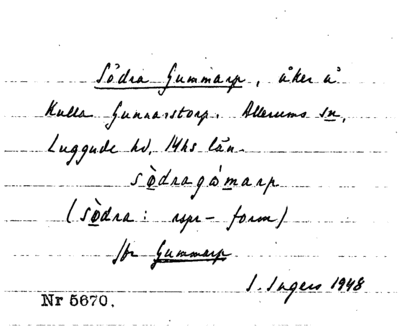 Södra Gummarp, åker å
Kulla Gunnarstorp. Allerums sn,
Luggude hd, Mhs län.
sø̀dragòmarp
(sø̀dra: rspr-form)
jfr Gummarp
I. Ingers 1948
Nr 5670.